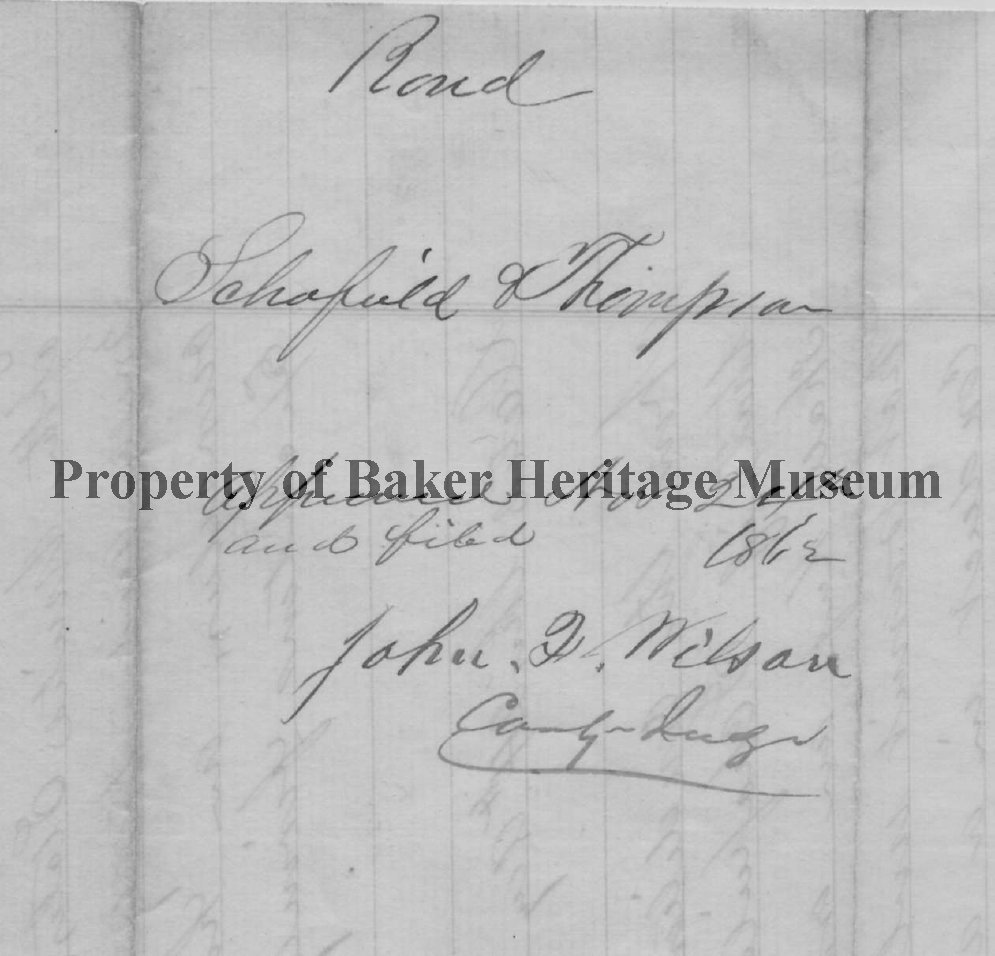 Bond
Schofield & Thompson
Property of Baker Heritage Museum
Approved Nov 24th
and filed 1862
John. Q. Wilson
County Judge